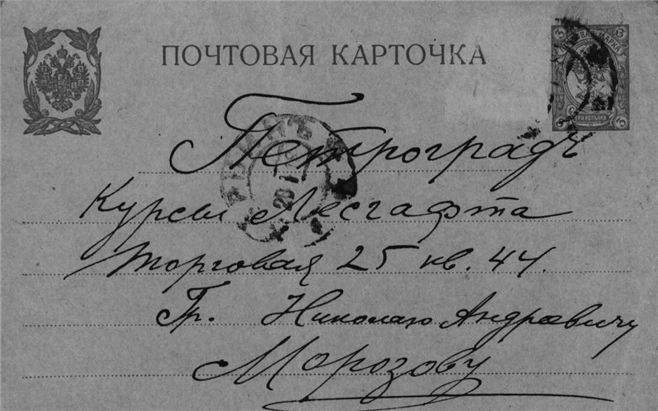 ПОЧТОВАЯ КАРТОЧКА
Петроградъ
Курсы Лесгафта
Торговая 25 кв. 44.
Гр. Николаю Андреевичу
Морозову